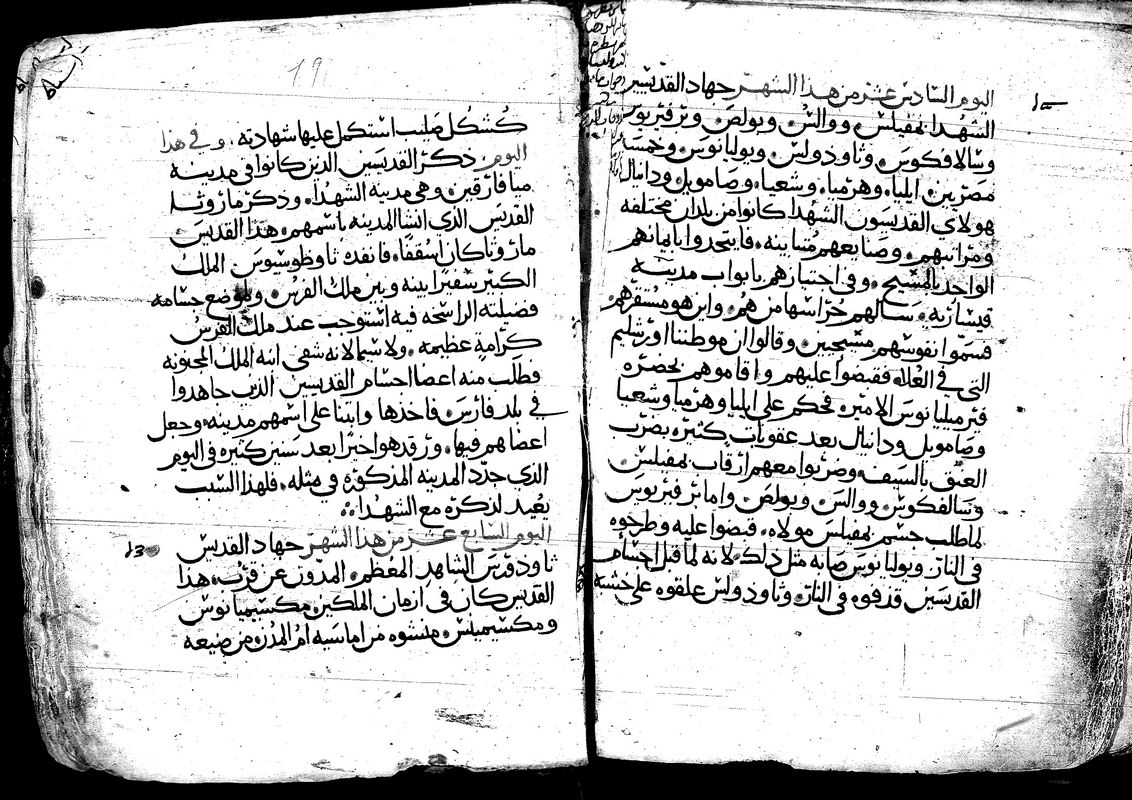 اليوم السادس عشر من هذا الشهر جهاد القديسين
الشهدا بمفيلس ووالس وبولص وبرفيريوس
وسالافكوس وثاودولس ويوليانوس وخمسة
مصريين ايليا وهرميا وشعيا وصامويل ودانيال
هولاي القديسون الشهدا كانوا من بلدان مختلفه
ومراتبهم وصنايعهم متباينه فايتحدوا بايمانهم
الواحد بالمسيح وفي اجتيازهم بابواب مدينة
قيسارية سالهم حراسها من هم واين هو مستقرهم
فسموا نفوسهم مسيحيين وقالوا ان موطننا اورشليم
التي في العلاه فقبضوا عليهم واقاموهم بحضرة
فرميليانوس الامير فحكم على ايليا وهرميا وشعيا
وصامويل ودانيال بعد عقوبات كثيرة بضرب
العنق بالسيف وضربوا معهم ارقاب بمفيلس
وسالفكوس ووالس وبولص واما برفيريوس
لما طلب جسم بمفيلس مولاه قبضوا عليه وطرحوه
في النار ويوليانوس صابه مثل ذلك لانه لما قبل اجسام
القديسين قذفوه في النار وثاودولس علقوه على خشبة
19
كشكل صليب استكمل عليها شهادته وفي هذا
اليوم ذكر القديسين الذين كانوا في مدينة
ميافارقين وهي مدينة الشهدا وذكر ماروثا
القديس الذي انشا المدينه باسمهم هذا القديس
ماروثا كان اسقفا فانفده ثاوظوسيوس الملك
الكبير سفيرا بينه وبين ملك الفرس ولموضع جسامه
فضيلته الراسخه فيه استوجب عند ملك الفرس
كرامة عظيمه ولا سيما لانه شفى ابنه الملك المجنونه
فطلب منه اعضا اجسام القديسين الذين جاهدوا
في بلد فارس فاخذها وابتنا على اسمهم مدينه وجعل
اعضاهم فيها ورقد هو اخيرا بعد سنين كثيره في اليوم
الذي جدد المدينه المذكوره في مثله فلهذا السبب
يعيد لذكره مع الشهدا
اليوم السابع عشر من هذا الشهر جهاد القديس
ثاودورس الشاهد المعظم المدون عن قرب هذا
القديس كان في ازمان الملكين مكسيميانوس
ومكسيميلس منشوه من اماسيه ام المدن من ضيعه